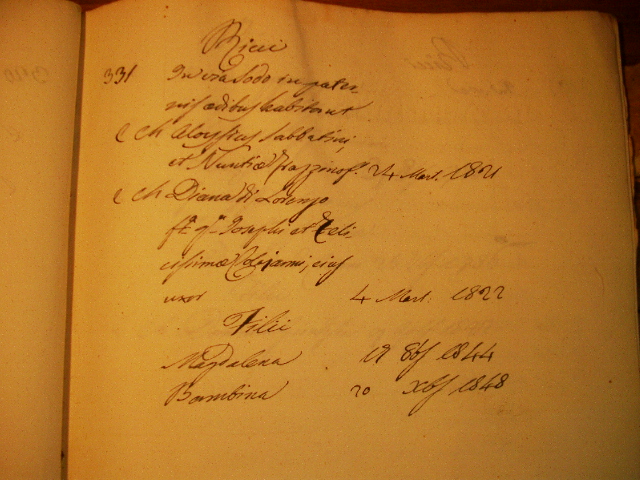 Ricci
331 In via Sodo in pater
nis ædibus habitant
C Ch Aloysius Sabbatini,
et Nuntiæ Frazzinof. 24 Mart. 1821
C Ch Diana Di Lorenzo
fil. qm Josephi et Feli
cissimæ, ejus
uxor 4 Mart. 1822
Filii
Magdalena 19 8bf 1844
Bambina 20 xbf 1848